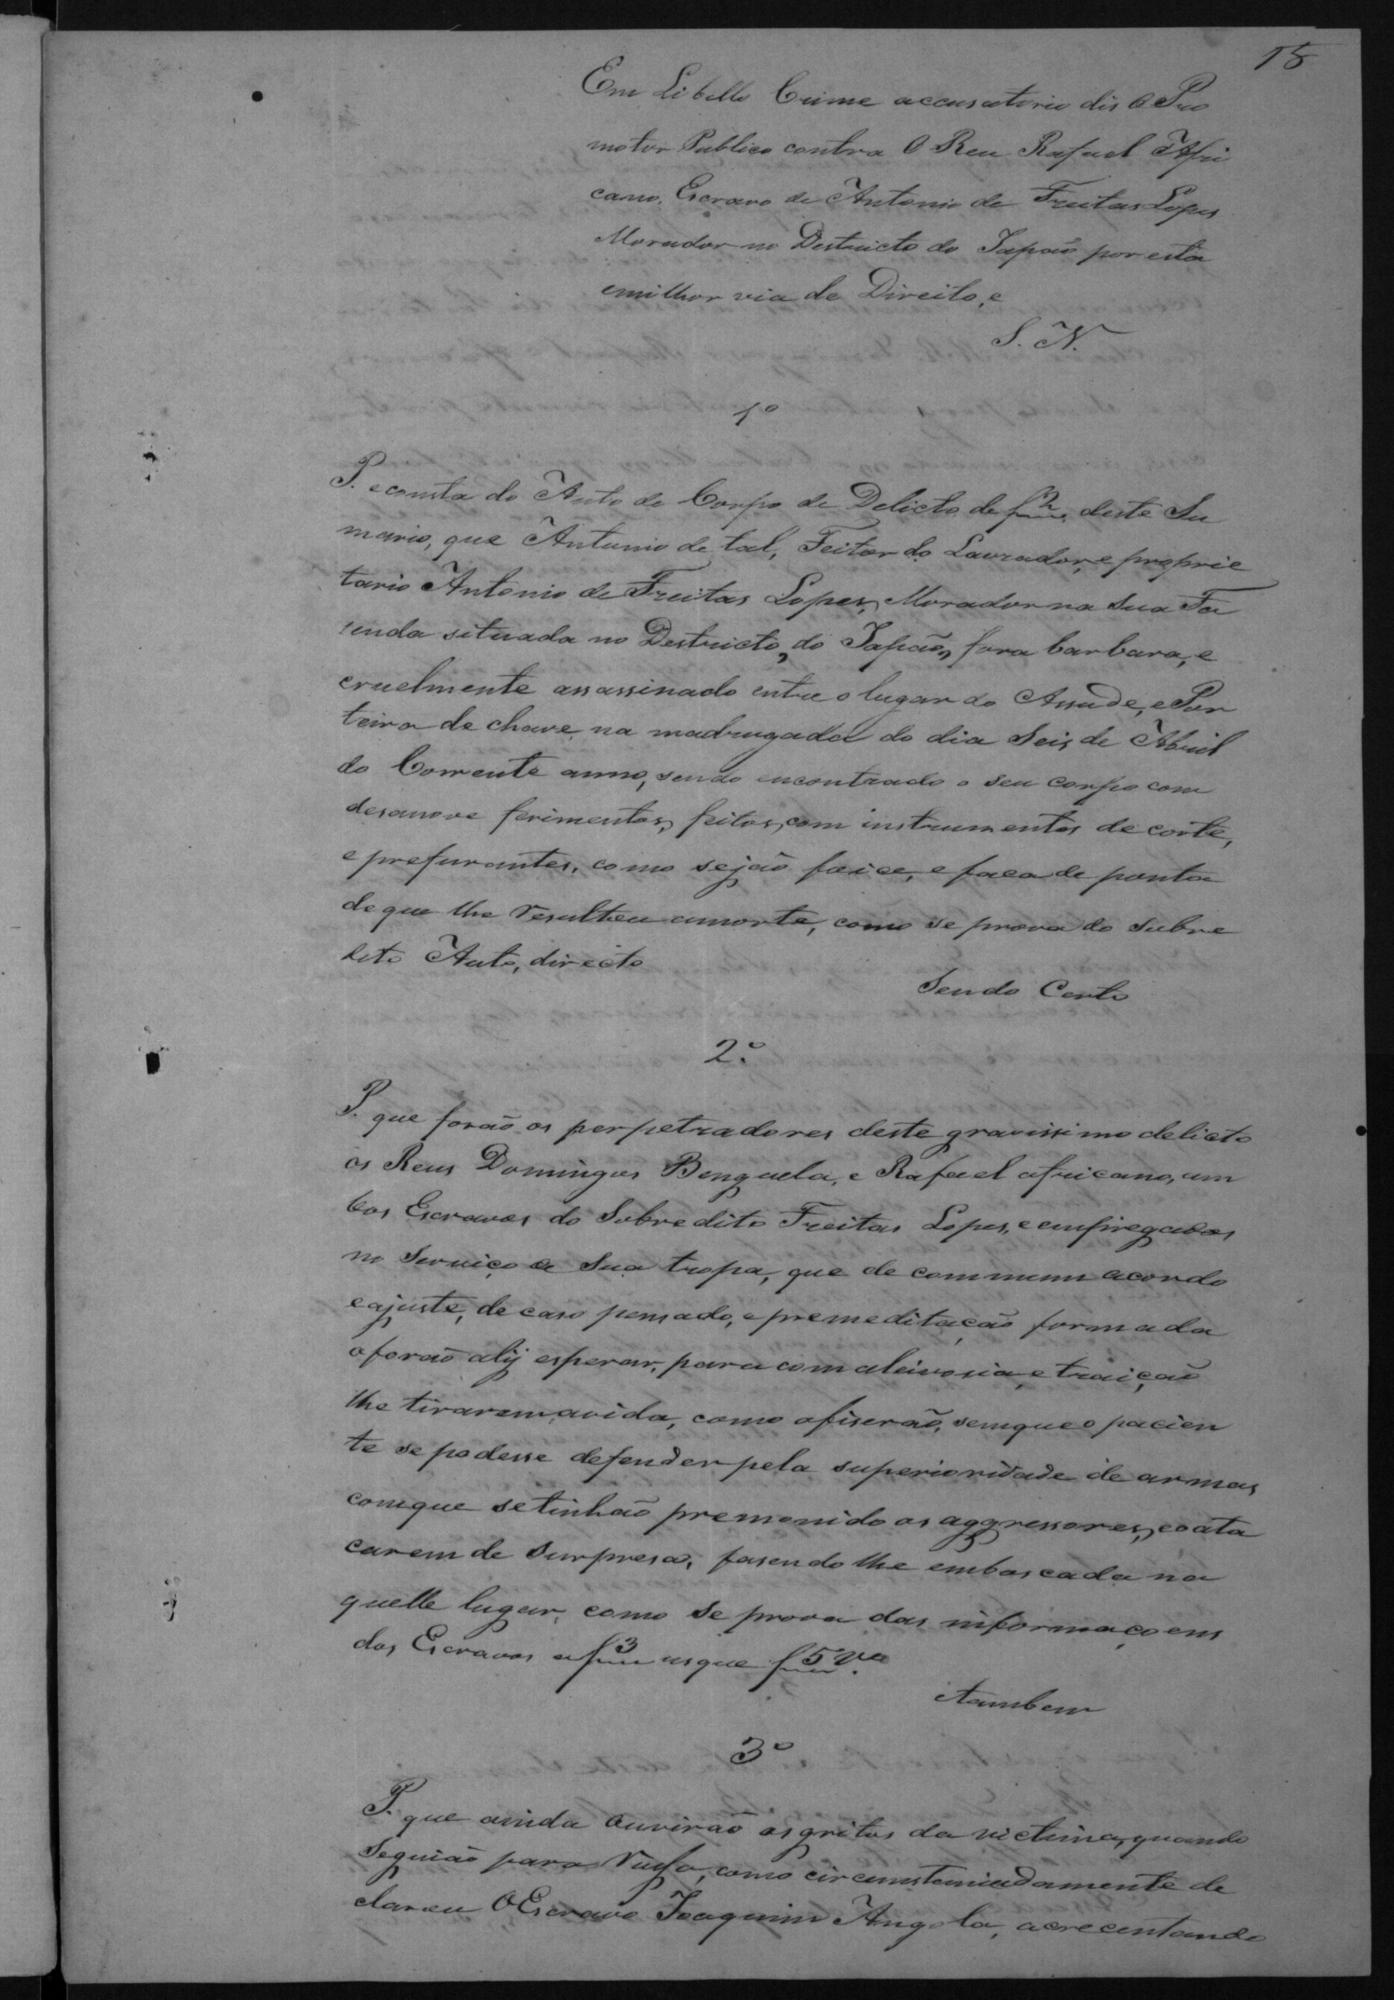 15
Em Libello Crime accusatorio dis o Pro
motor Publico contra O Reu Rafael Afri
cano, Escravo de Antonio de Freitas Lopes
Morador no Destricto do Japão por esta
emilhor via de Direito, e
S. N.
1º
P. econsta do Auto de Corpo de Delicto de f 2 deste Su
mario, que Antonio de tal, Feitor do Lavrador, e proprie
tario Antonio de Freitas Lopes, Morador na Sua Fa
senda situada no Destricto, do Japão, fora barbara, e
cruelmente assassinado entre o lugar do Assude, e Por
teira de chave, na madrugada do dia Seis de Abril
do Corrente anno, sendo encontrado o seu corpo com
desanove ferimentos, feitos, com instrumentos de corte,
e prefurantes, como sejão foice, e faca de ponta
de que lhe resultou amorte, como se prova do Subre
dito Auto, directo
Sendo Certo
2º
P. que forão os perpetradores deste gravissimo delicto
os Reus Domingos Benguela, e Rafael africano, am
bos Escravos do Sobredito Freitas Lopes, e empregados
no Serviço de Sua tropa, que de commum acordo
eajuste, de caso pensado, e premeditação formada
oforão alij esperar, para com aleivosia, e traição
lhe tirarem avida, como ofiserão, semque o pacien
te se podesse defender pela superioridade de armas
comque setinhão premonido os aggressores, eoata
carem de Surpresa, fasendo lhe emboscada na
quelle lugar, como Se prova das informaçoens
dos Escravos af 3 usque f 5 vº
etambem
3º
P. que ainda Ouvirão osgritos da victima, quando
Seguião para, como circunstanciadamente de
clarou OEscravo Joaquim Angola, acrecentando